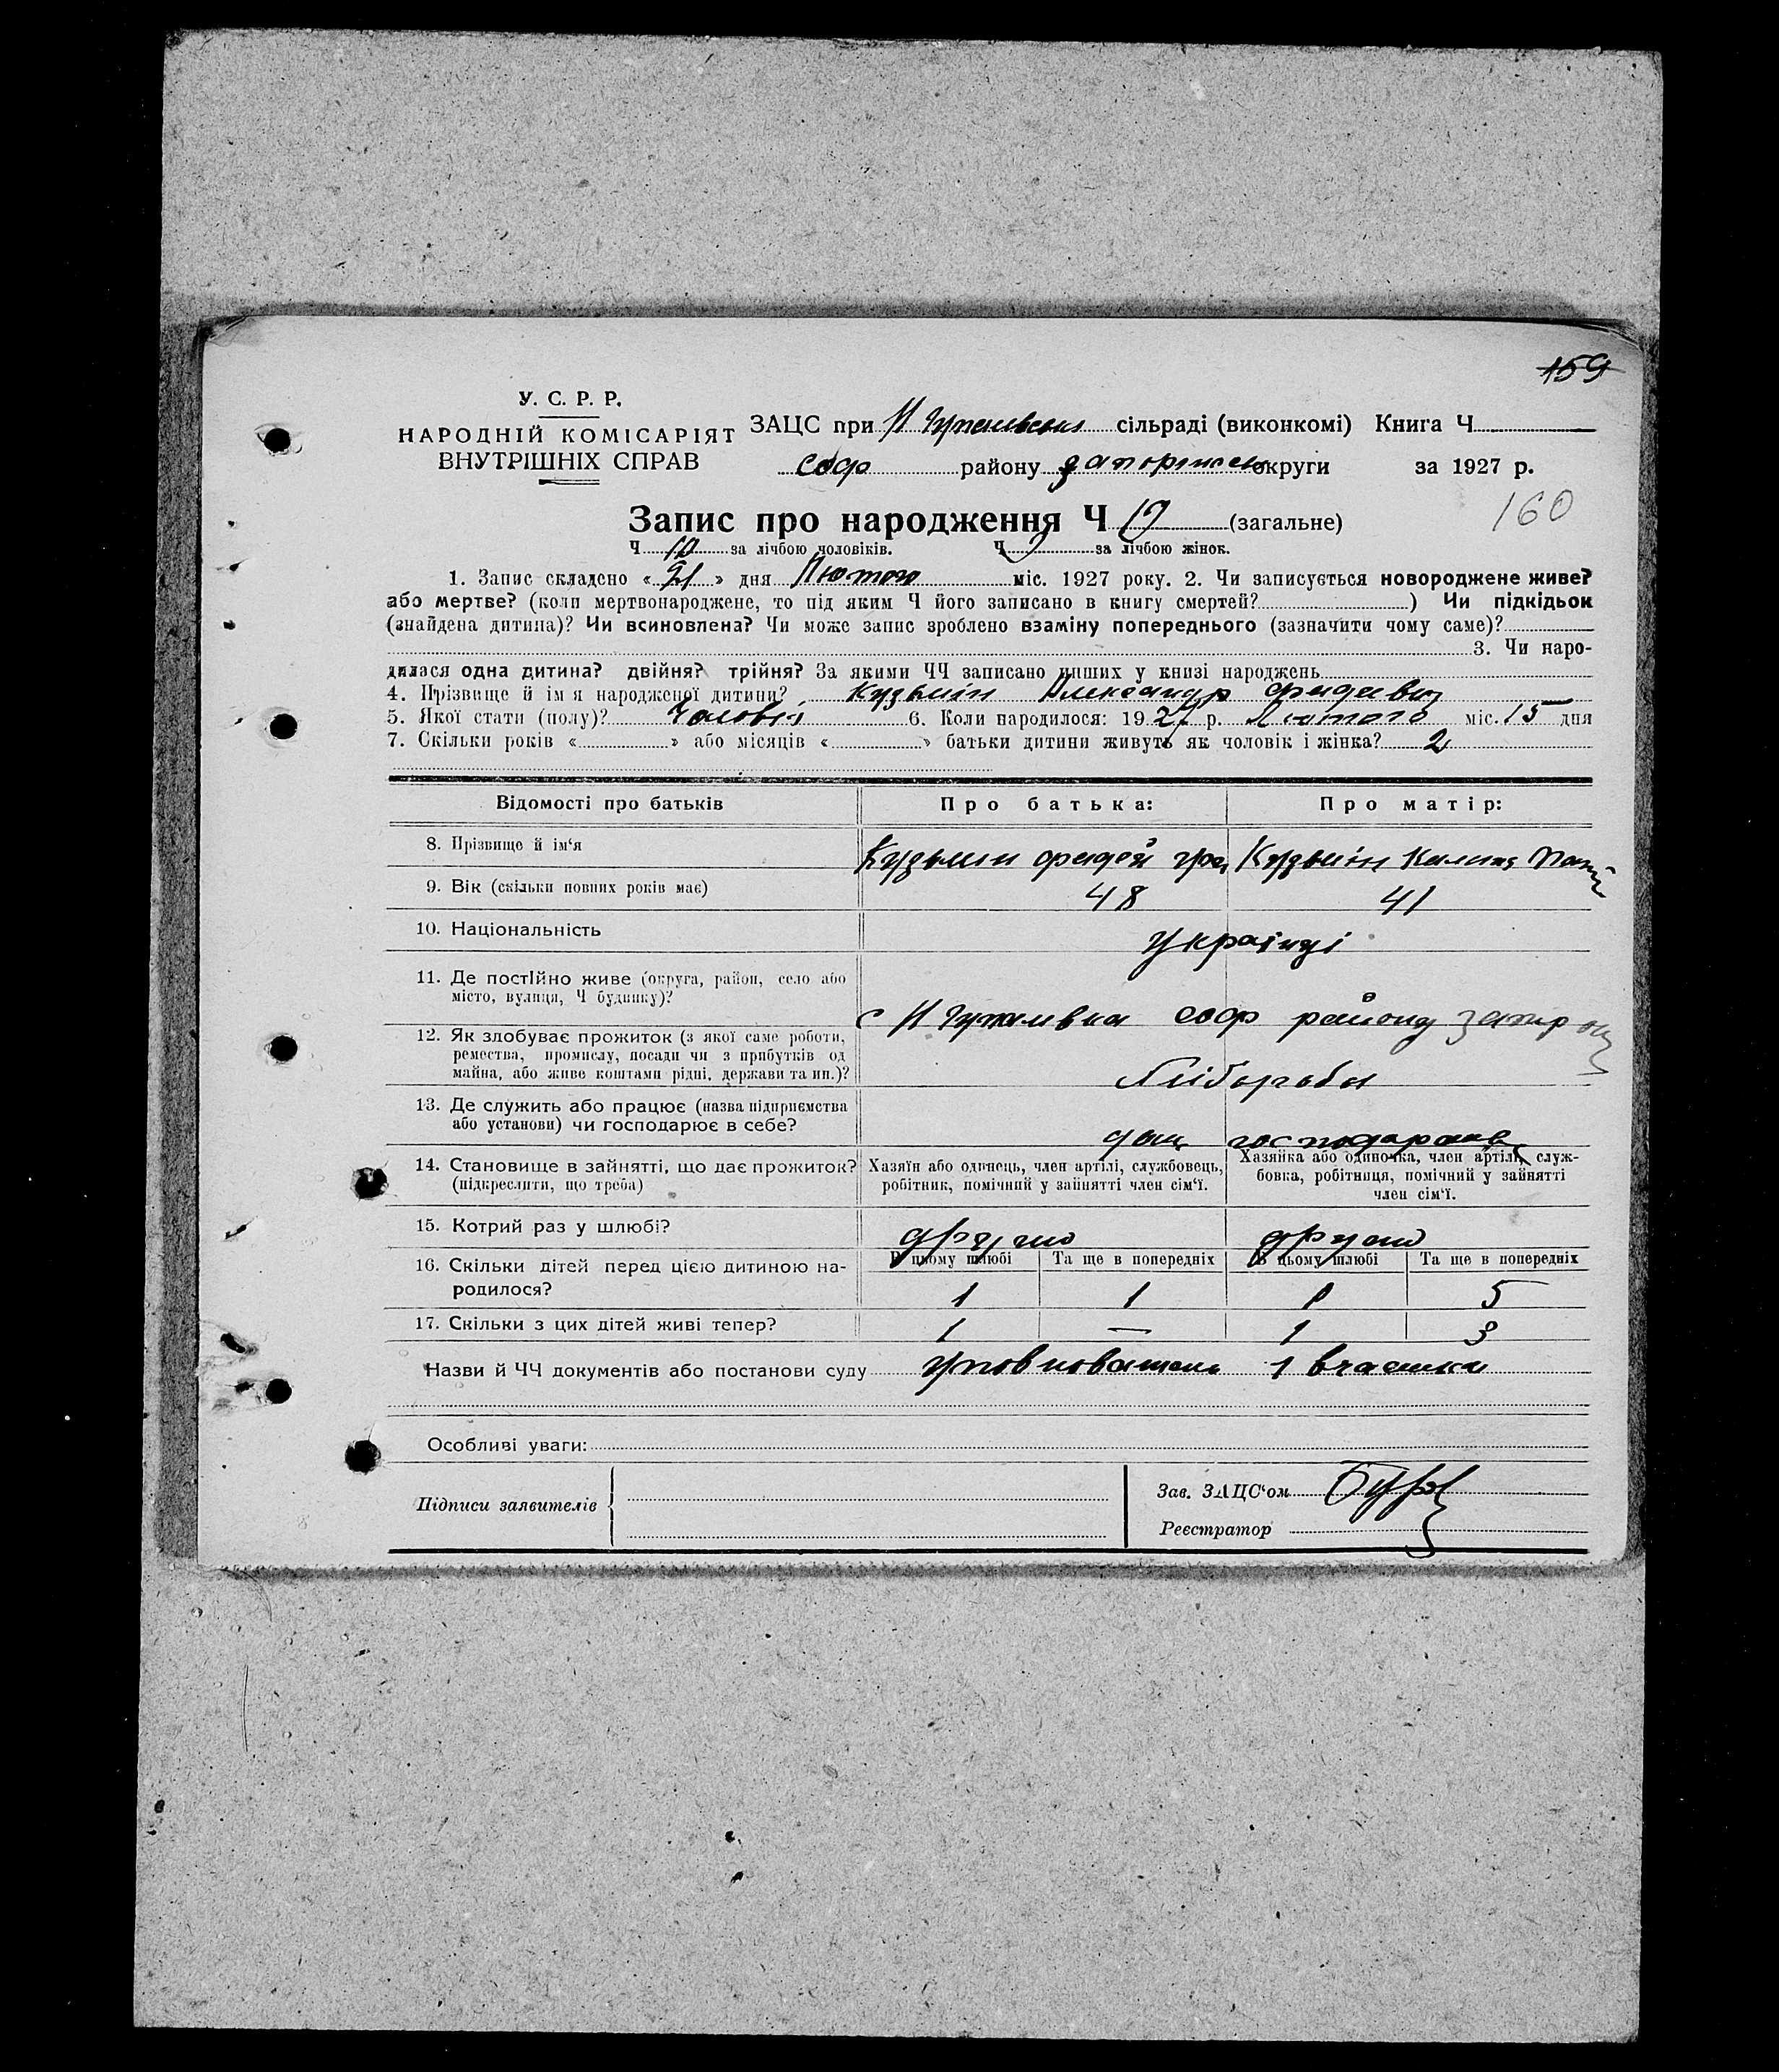 159
У. С. Р. Р.
НАРОДНІЙ КОМІСАРІЯТ
ВНУТРІШНІХ СПРАВ
ЗАЦС при сільраді (виконкомі) Книга Ч
соф району запорижськ округи за 1927 р.
160
Запис про народження Ч (загальне)
Ч 10 за лічбою чоловіків. Ч за лічбою жінок.
1. Запис складено « 21 » дня Лютого міс. 1927 року. 2. Чи записується новороджене живе?
або мертве? (коли мертвонароджене, то під яким Ч його записано в книгу смертей? ) Чи підкідьок
(знайдена дитина)? Чи всиновлена? Чи може запис зроблено взаміну попереднього (зазначити чому саме)?
3. Чи наро-
дилася одна дитина? двійня? трійня? За якими ЧЧ записано инших у книзі народжень
4. Прізвище й ім'я народженої дитини? Кузьмін Александр
5. Якої стати (полу)? Чоловіч 6. Коли народилося: 1927 р. Лютого міс. 15 дня
7. Скільки років « » або місяців « » батьки дитини живуть як чоловік і жінка? 2
Відомості про батьків Про батька: Про матір:
8. Прізвище й ім'я Кузьмин фадей Кузьмін
9. Вік (скільки повних років має) 48 41
10. Національність Українці
11. Де постійно живе (округа, район, село або
місто, вулиця, Ч будинку)?
с соф району
12. Як здобуває прожиток (з якої саме роботи,
ремества, промислу, посади чи з прибутків од
майна, або живе коштами рідні, держави та ин.)?
Хліборобі
13. Де служить або працює (назва підприємства
або установи) чи господарює в себе?
14. Становище в зайнятті, що дає прожиток?
(підкреслити, що треба)
Хазяїн або одинець, член артілі, службовець,
робітник, помічний у зайнятті член сім'ї.
Хазяйка або одиночка, член артілі, служ-
бовка, робітниця, помічний у зайнятті
член сім'ї.
15. Котрий раз у шлюбі? другий другий
16. Скільки дітей перед цією дитиною на-
родилося?
В цьому шлюбі Та ще в попередніх В цьому шлюбі Та ще в попередніх
1 1 1 5
17. Скільки з цих дітей живі тепер? 1 — 1 3
Назви й ЧЧ документів або постанови суду 1
Особливі уваги:
Підписи заявителів
Зав. ЗАЦС'ом
Реєстратор